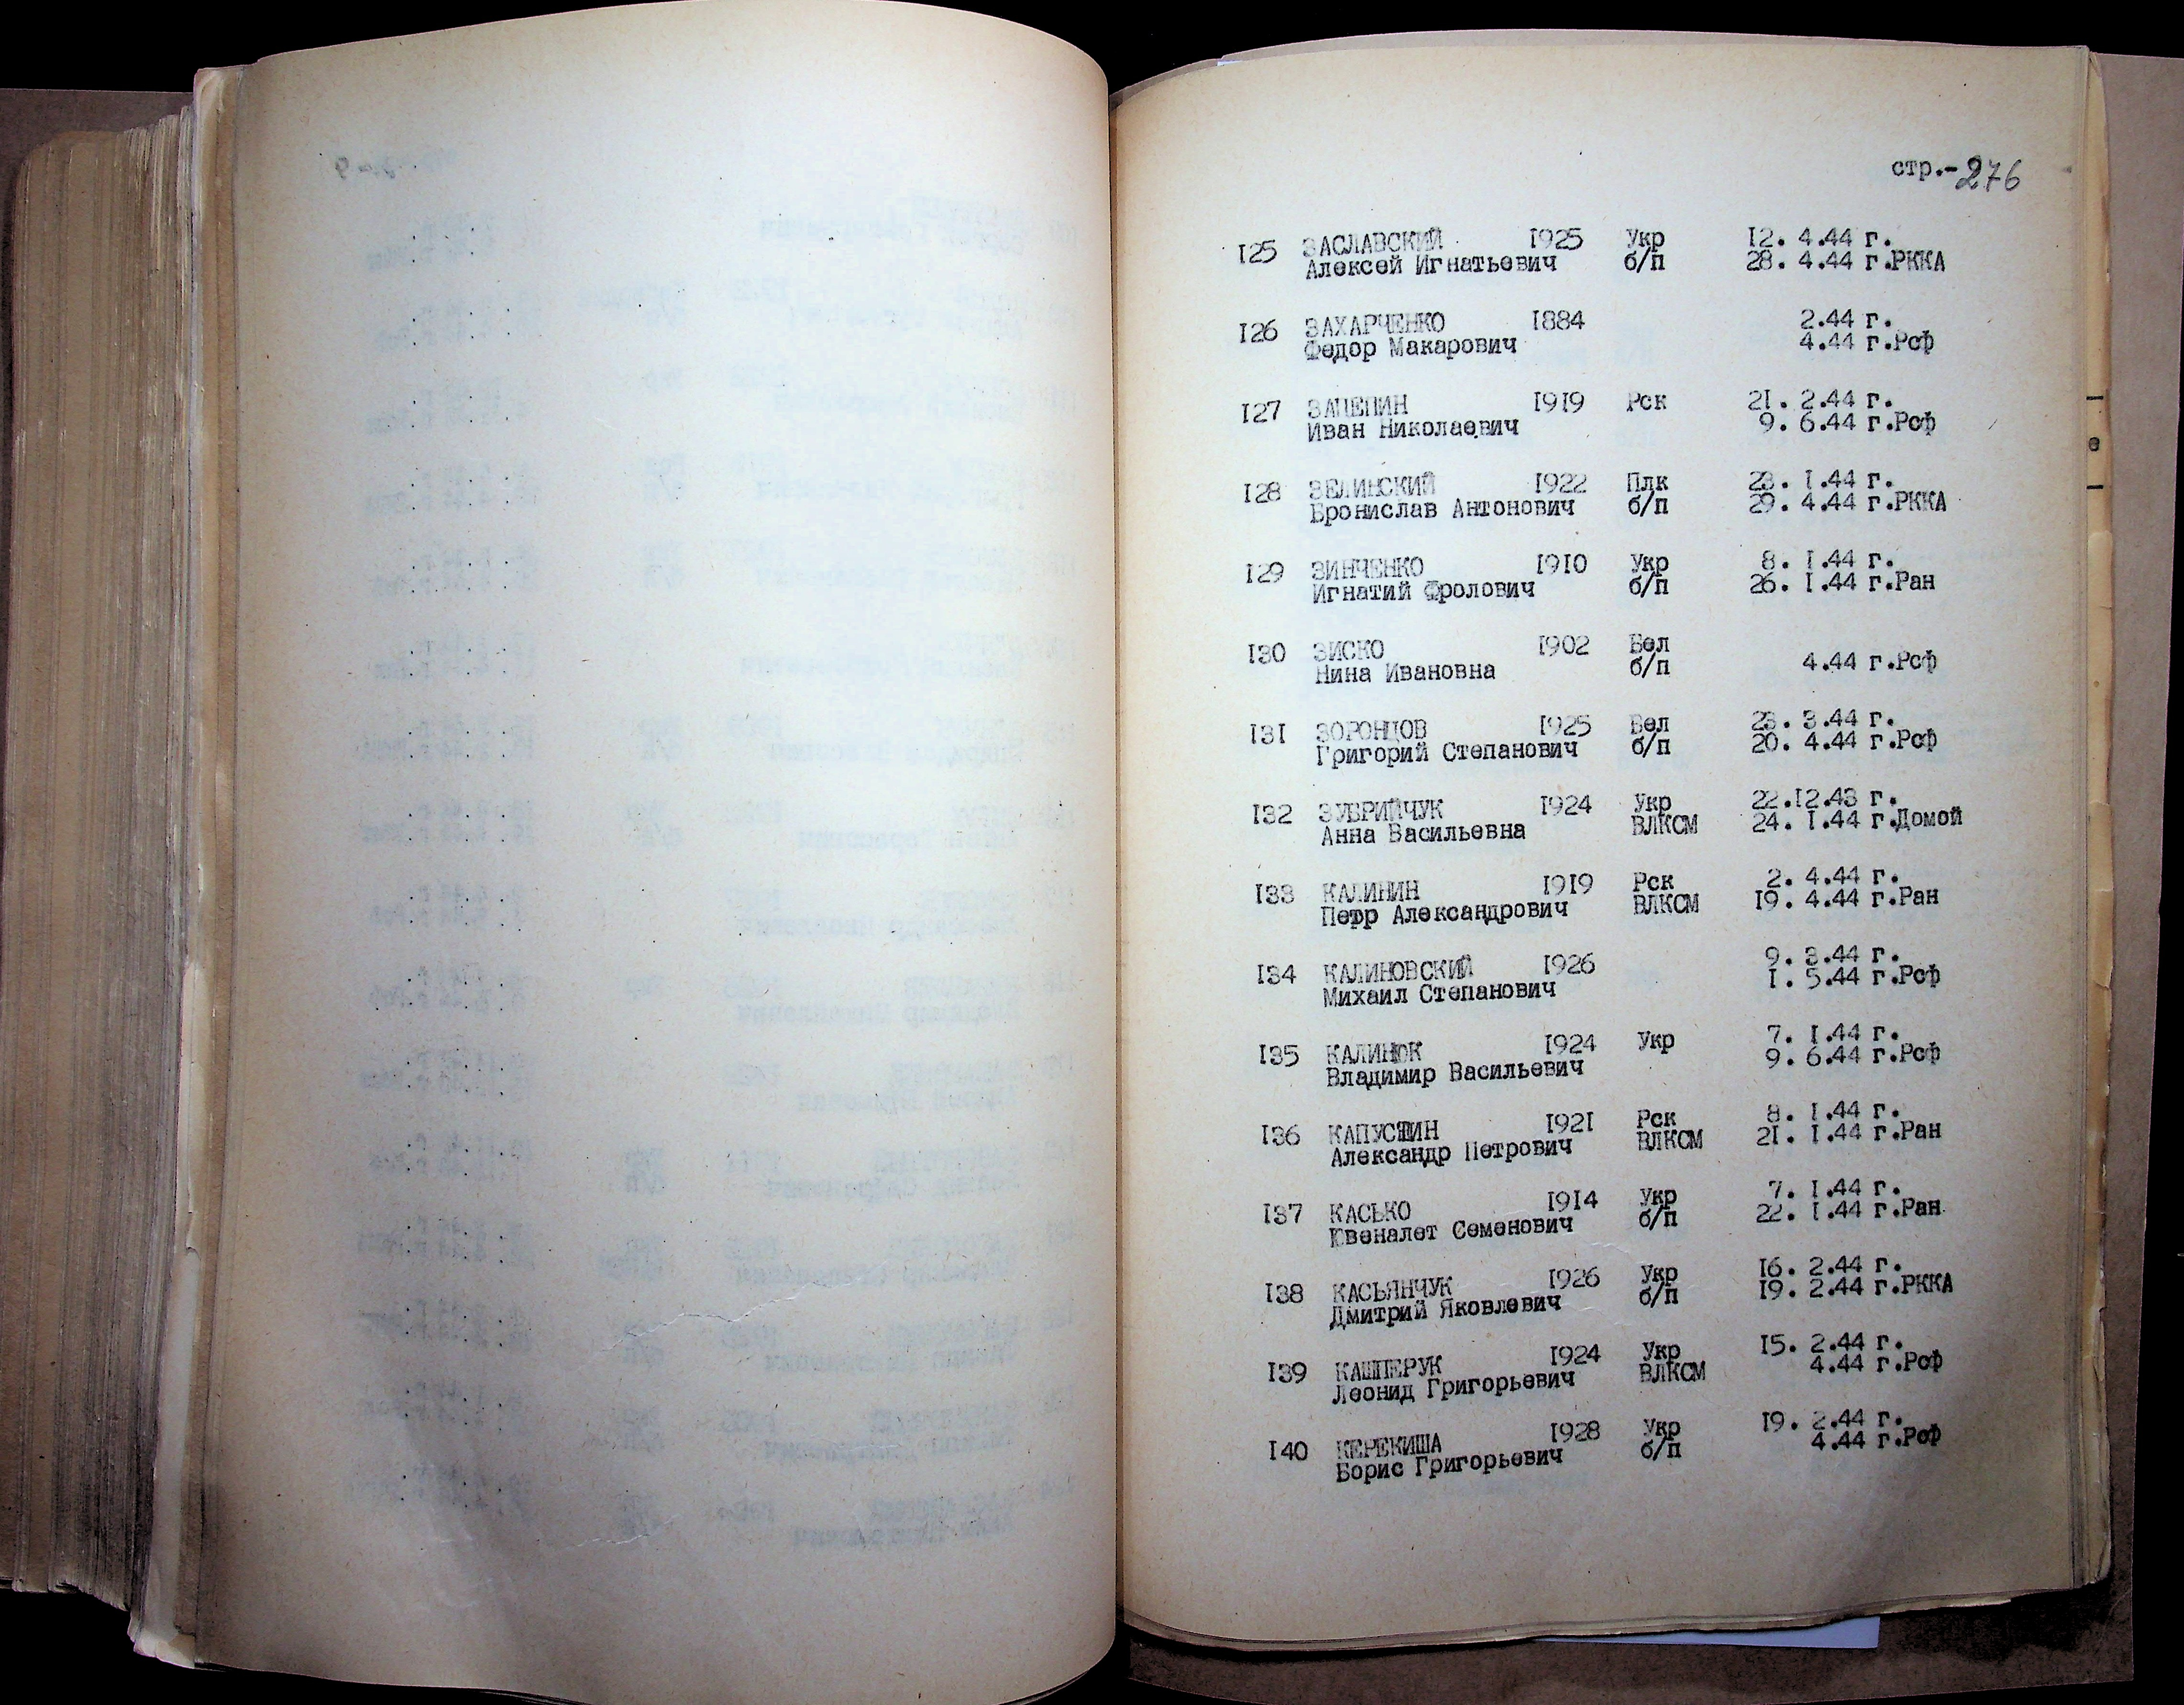 стр.-276
I25 ЗАСЛАВСКИЙ I925 Укр I2. 4.44 г.
Алексей Игнатьевич б/п 28. 4.44 г.РККА
I26 ЗАХАРЧЕНКО I884 2.44 г.
Федор Макарович 4.44 г.Рсф
I27 ЗАЦЕПИН I9I9 Рск 2I. 2.44 г.
Иван Николаевич 9. 6.44 г.Рсф
I28 ЗЕЛИНСКИЙ I922 Плк 23. I.44 г.
Бронислав Антонович б/п 29. 4.44 г.РККА
I29 ЗИНЧЕНКО I9I0 Укр 8. I.44 г.
Игнатий Фролович б/п 26. I.44 г.Ран
I30 ЗИСКО I902 Бел
Нина Ивановна б/п 4.44 г.Рсф
I3I ЗОРОНЦОВ I925 Бел 23. 3.44 г.
Григорий Степанович б/п 20. 4.44 г.Рсф
I32 ЗУБРИЙЧУК I924 Укр 22.I2.43 г.
Анна Васильевна ВЛКСМ 24. I.44 г.Домой
I33 КАЛИНИН I9I9 Рск 2. 4.44 г.
Петр Александрович ВЛКСМ I9. 4.44 г.Ран
I34 КАЛИНОВСКИЙ I926 9. 3.44 г.
Михаил Степанович I. 5.44 г.Рсф
I35 КАЛИНОК I924 Укр 7. I.44 г.
Владимир Васильевич 9. 6.44 г.Рсф
I36 КАПУСТИН I92I Рск 8. I.44 г.
Александр Петрович ВЛКСМ 2I. I.44 г.Ран
I37 КАСЬКО I9I4 Укр 7. I.44 г.
Ювеналет Семенович б/п 22. I.44 г.Ран
I38 КАСЬЯНЧУК I926 Укр I6. 2.44 г.
Дмитрий Яковлевич б/п I9. 2.44 г.РККА
I39 КАШПЕРУК I924 Укр I5. 2.44 г.
Леонид Григорьевич ВЛКСМ 4.44 г.Рсф
I40 КЕРЕКИША I928 Укр I9. 2.44 г.
Борис Григорьевич б/п 4.44 г.Рсф